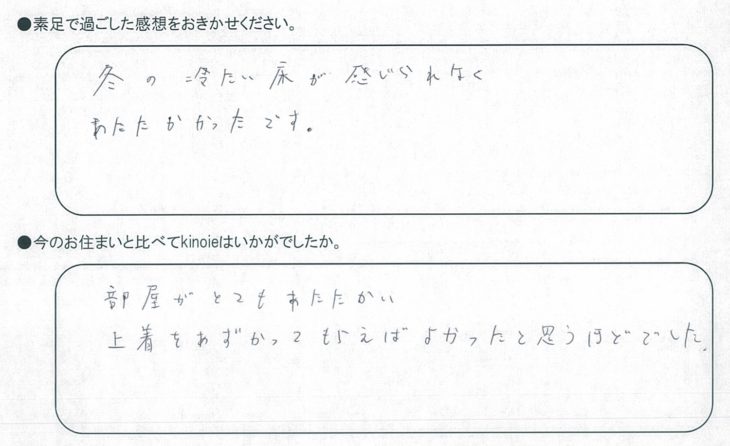 ●素足で過ごした感想をおきかせください。
冬の冷たい床が感じられなく
あたたかかったです。
●今のお住まいと比べてkinoieはいかがでしたか。
部屋がとてもあたたかい
上着をあずかってもらえばよかったと思うほどでした。